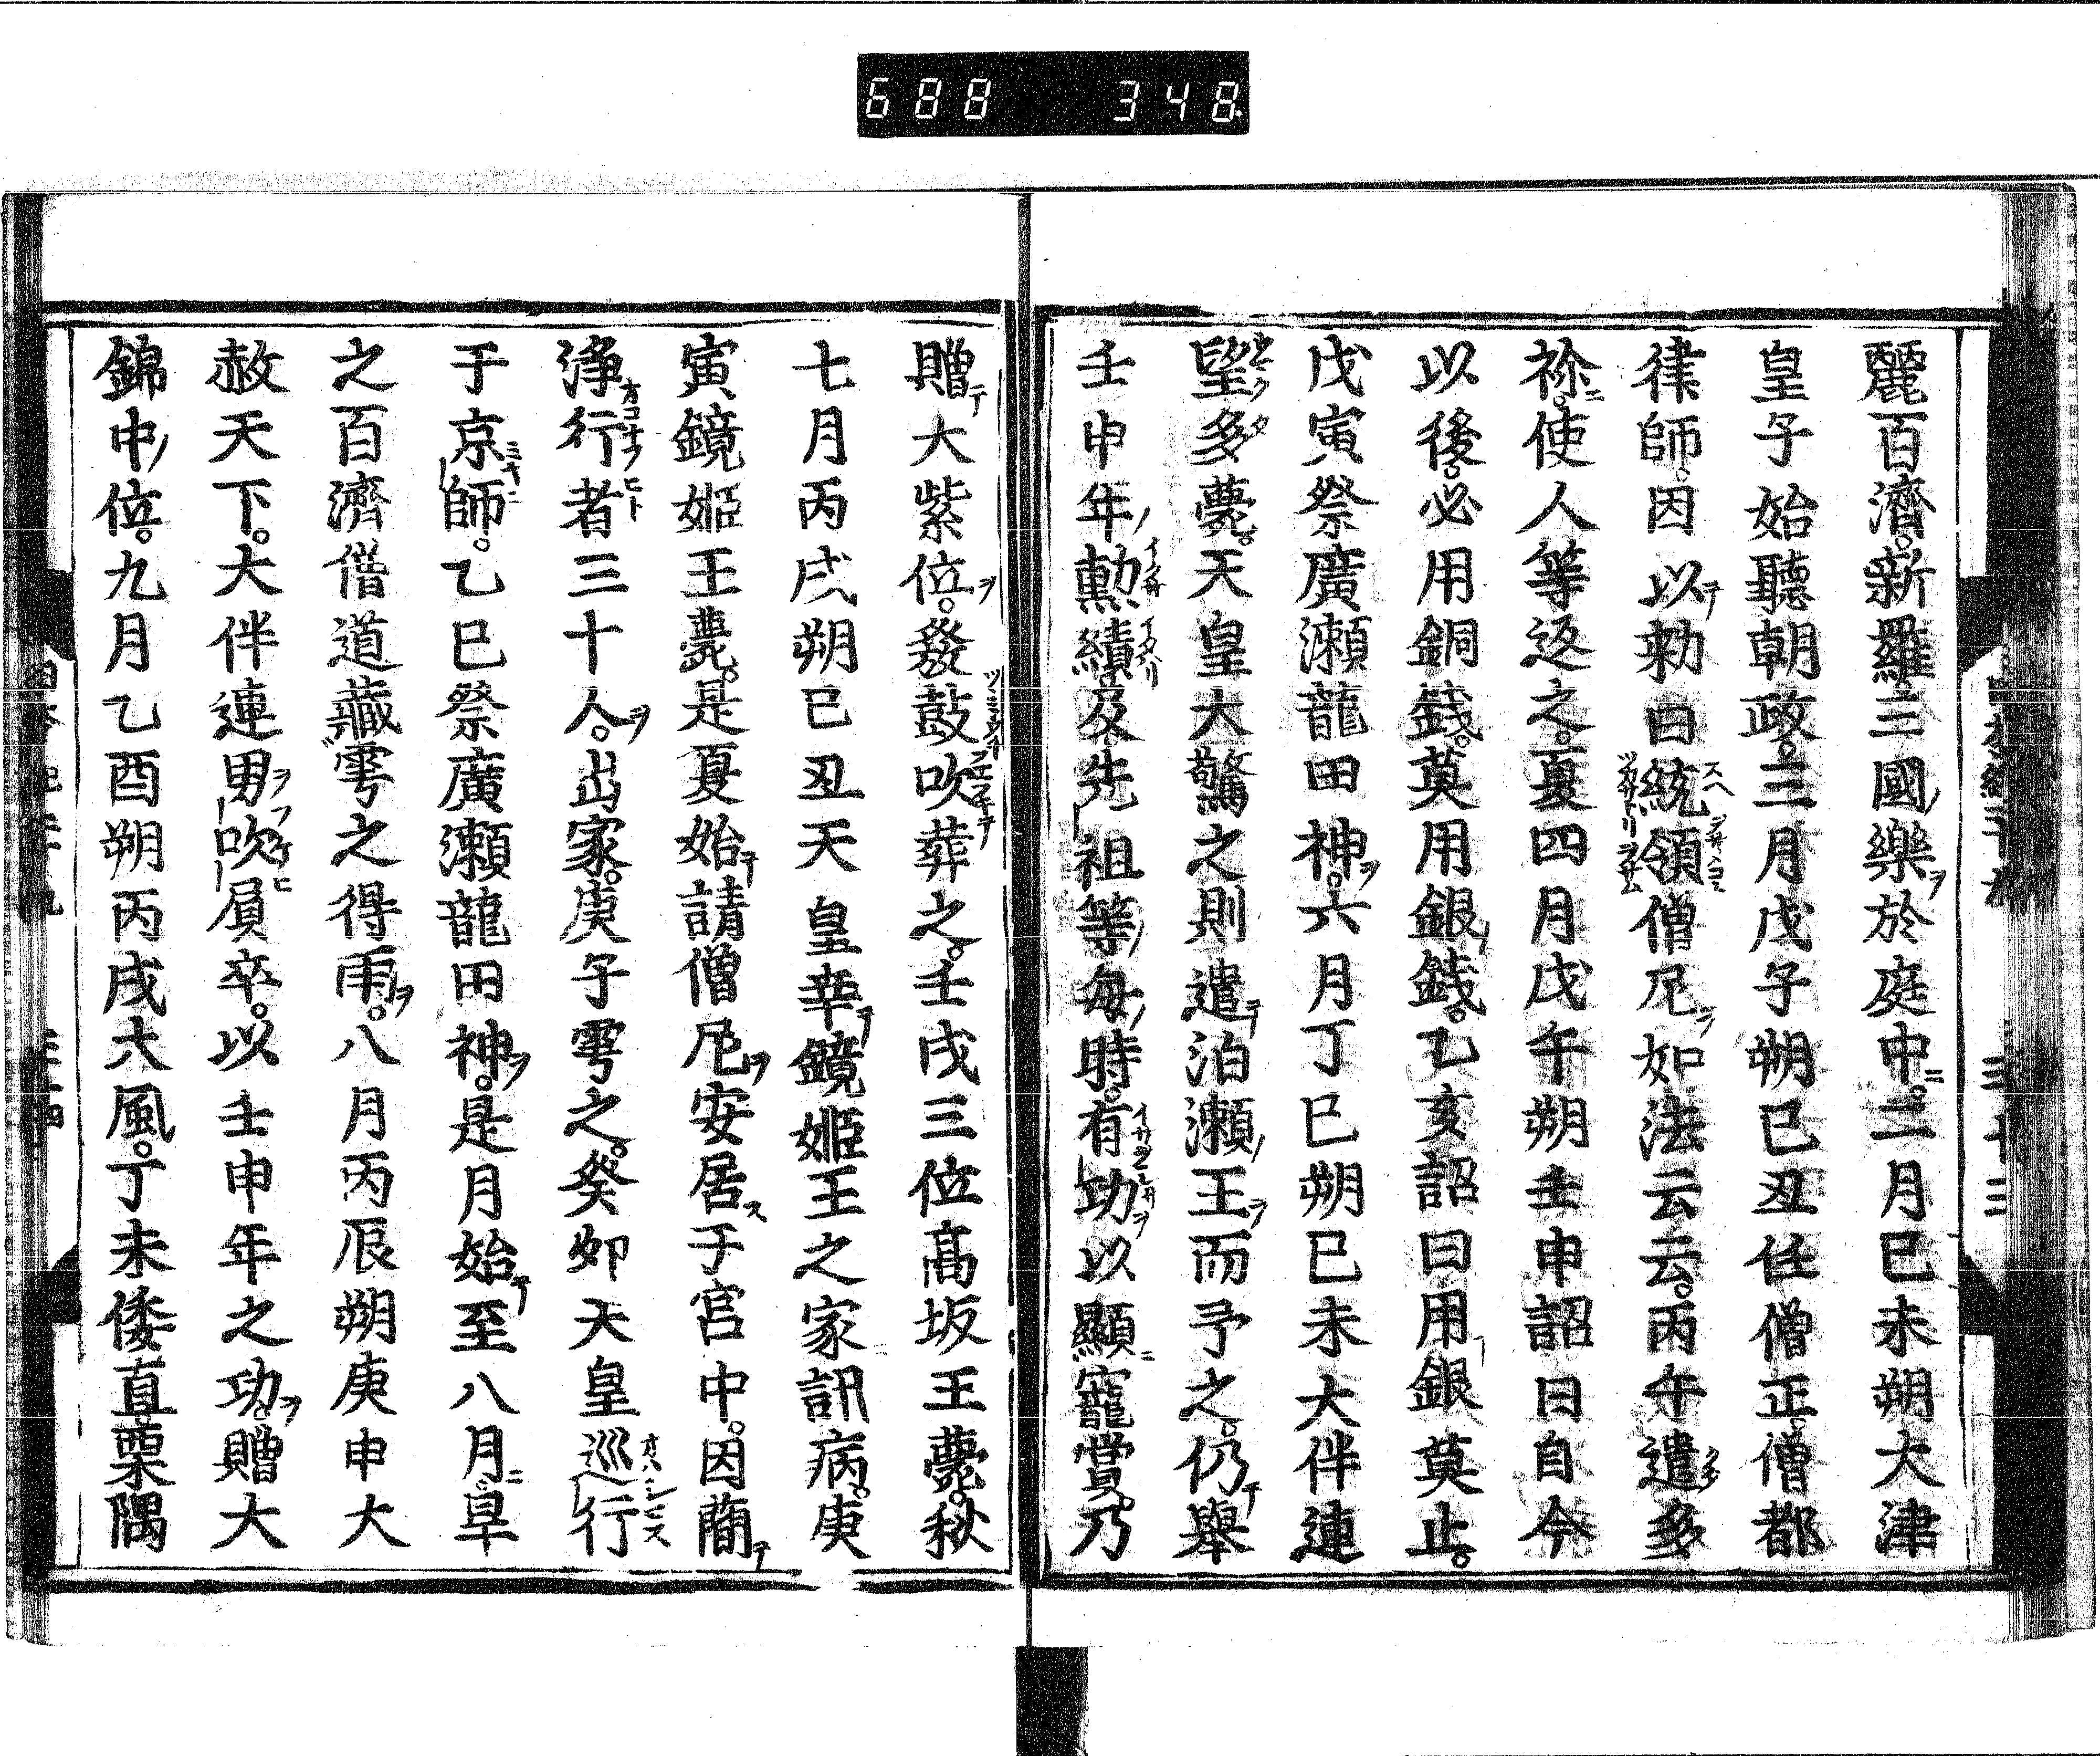 688 348
麗百濟。新羅三國樂於庭中。二月己未朔大津
皇子始聽朝政。三月戊子朔己丑任僧正僧都
律師。因以勅曰統領僧尼如法云云。丙午遣多
祢。使人等返之。夏四月戊午朔壬申詔曰自今
以後。必用銅錢。莫用銀錢。乙亥詔曰用銀莫止。
戊寅祭廣瀬龍田神。六月丁巳朔己未大伴連
望多薨。天皇大驚之則遣泊瀬王而予之。仍舉
壬申年勳績及先祖等毎時。有功以顯寵賞。乃
贈大紫位。發鼓吹葬之。壬戌三位髙坂王薨。秋
七月丙戌朔己丑天皇幸鏡姫王之家訊病。庚
寅鏡姫王薨。是夏始請僧尼安居于宮中。因蕳
浄行者三十人。出家。庚子雩之。癸卯天皇巡行
于京師。乙巳祭廣瀬龍田神。是月始至八月旱
之百濟僧道藏雩之得雨。八月丙辰朔庚申大
赦天下。大伴連男吹屓卒。以壬申年之功。贈大
錦中位。九月乙酉朔丙戌大風。丁未倭直栗隅